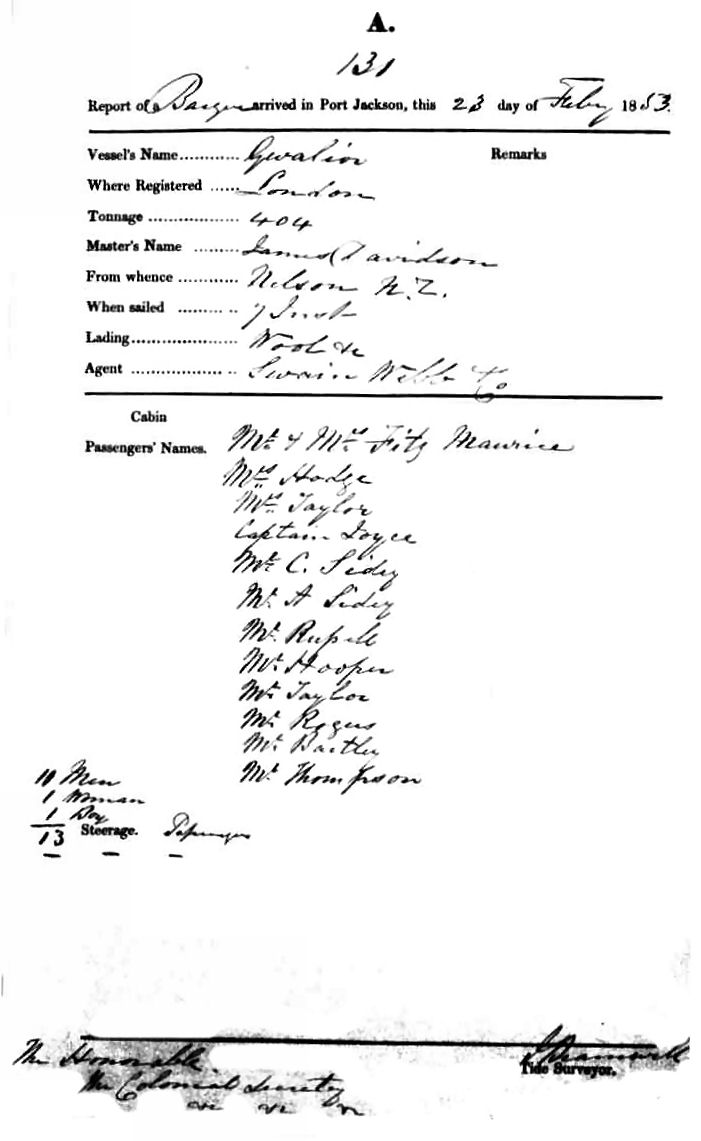 A.
131
Report of a Barque arrived in Port Jackson, this 23 day of Feby 1853.
Vessel's Name............ Gwalior Remarks
Where Registered ...... London
Tonnage .................. 404
Master's Name ......... James Davidson
From whence ............ Nelson N.Z.
When sailed ......... .. 7 Inst
Lading..................... Wool &c
Agent ................... .. Swain Webb & Co
Cabin
Passengers' Names. Mr & Mrs Fitz Maurice
Mrs Hodge
Mrs Taylor
Captain Joyce
Mr C. Sidey
Mr A Sidey
Mr Russell
Mr Hooper
Mr Taylor
Mr Rogers
Mr Bartley
Mr Thompson
11 Men
1 Woman
1 Boy
13 Steerage. Passengers
The Honorable
The Colonial Secretary Tide Surveyor.
&c &c &c